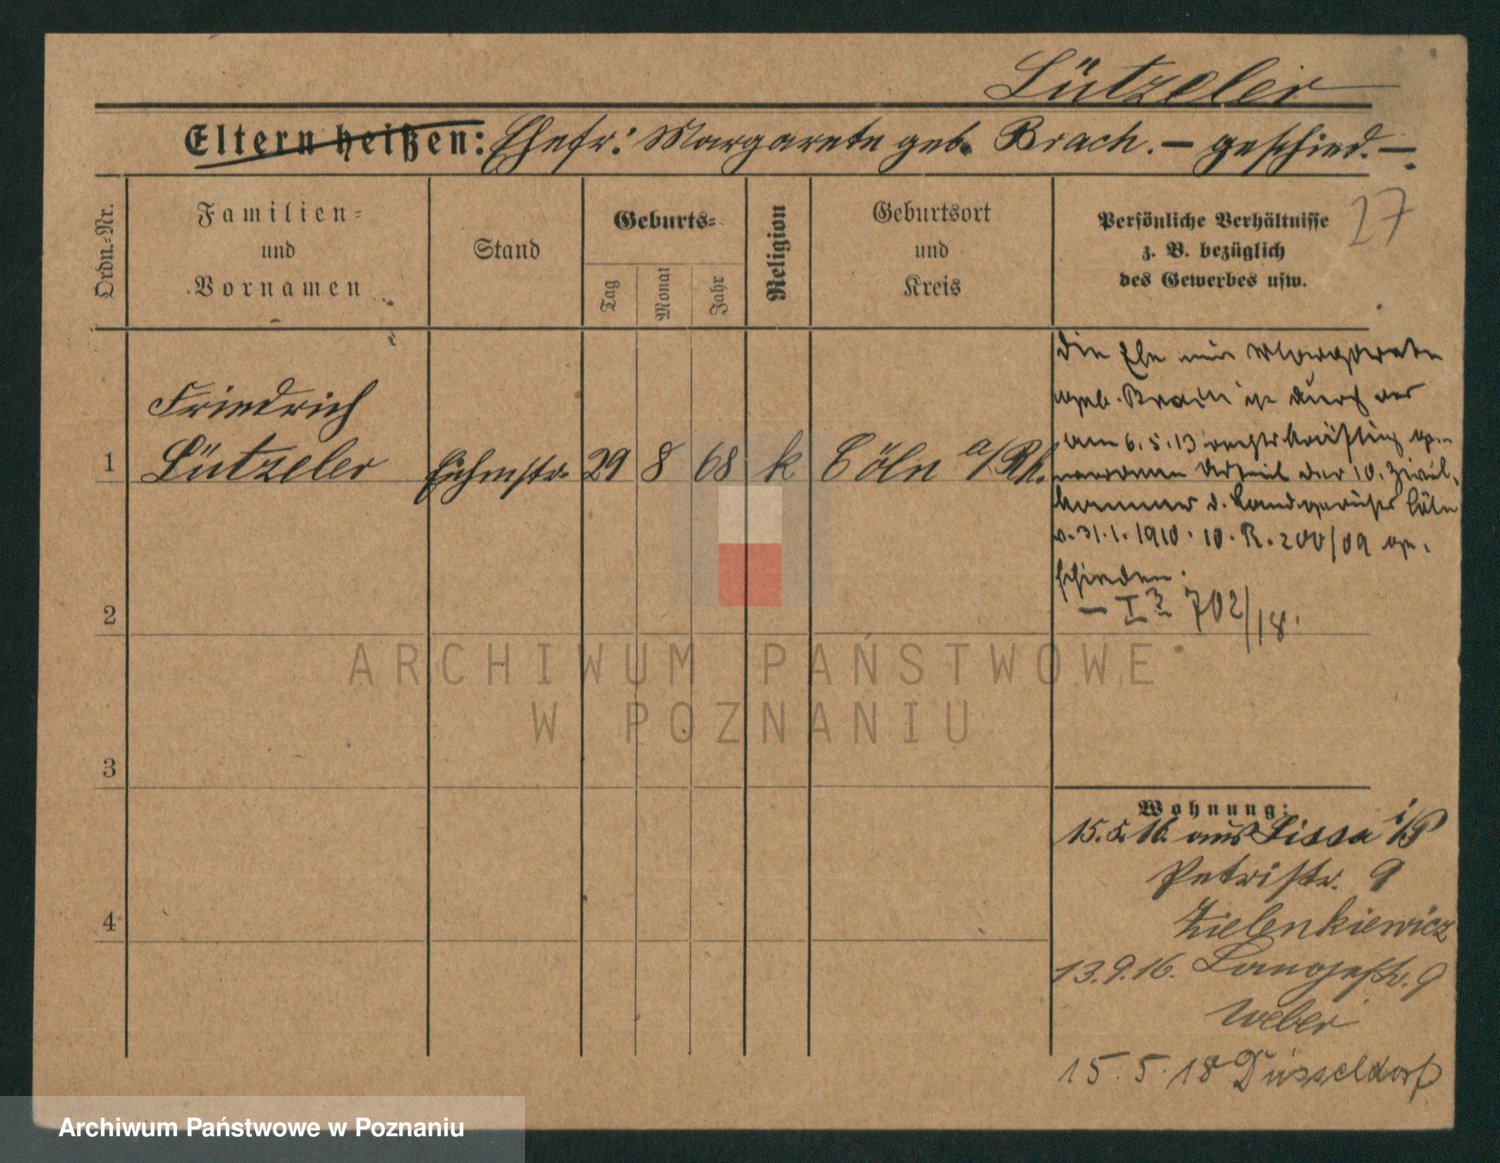 Lützeler
Eltern heißen: Ehefr: Margarete geb. Brach. — geschied. —
Ordn.=Nr.
Familien=
und
Vornamen
Stand
Geburts=
Tag
Monat
Jahr
Religion
Geburtsort
und
Kreis
Persönliche Verhältnisse
z. B. bezüglich
des Gewerbes usw.
27
1
Friedrich
Lützeler
29
8
68
k
Cöln a/Rh.
Die Ehe mit Margarete
geb. ist durch das
am 6.5.13 rechtskräftig ge-
wordene Urteil der 10. Zivil-
kammer d. Landgerichts Cöln
v. 31.1.1910. 10. R. 200/09 ge-
schieden.
702/18.
2
3
4
Wohnung:
15.5.16. aus Lissa i/P
Petristr. 9
Zielenkiewicz
13.9.16. Langestr. 9
Weber
15.5.18 Düsseldorf
ARCHIWUM PAŃSTWOWE
W POZNANIU
Archiwum Państwowe w Poznaniu